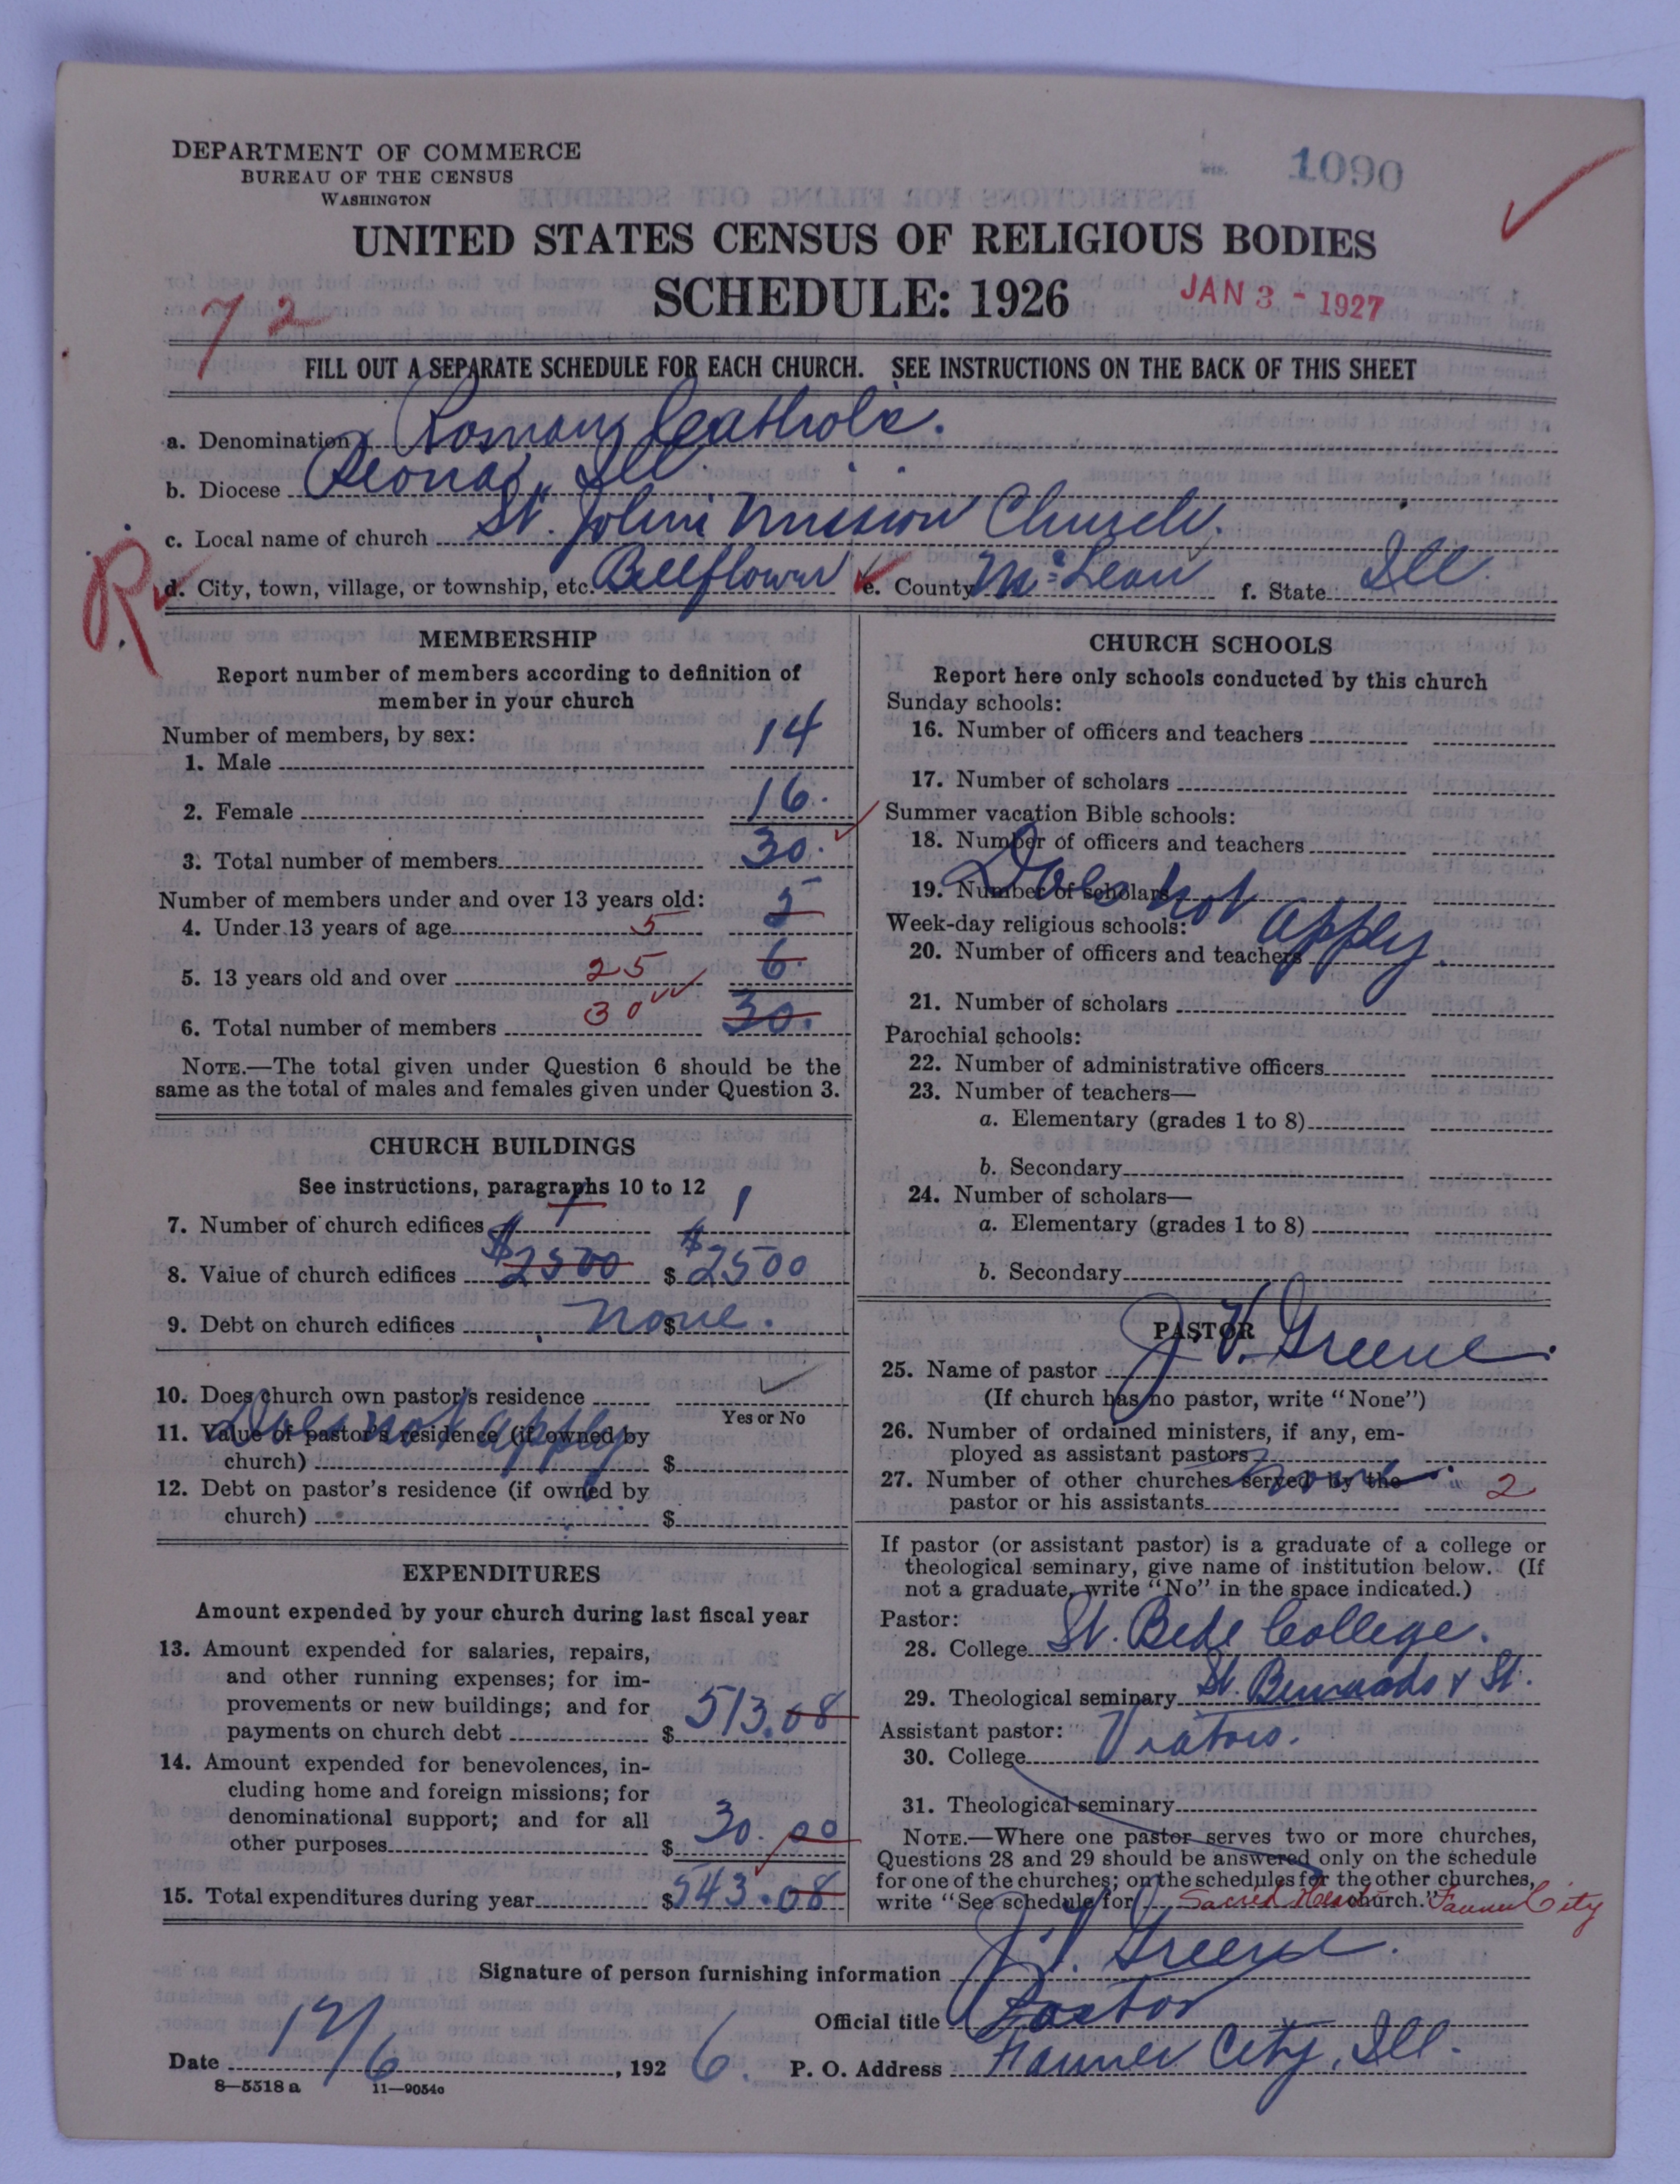 DEPARTMENT OF COMMERCE
BUREAU OF THE CENSUS
WASHINGTON
1090
UNITED STATES CENSUS OF RELIGIOUS BODIES
SCHEDULE: 1926
JAN 3 - 1927
72
FILL OUT A SEPARATE SCHEDULE FOR EACH CHURCH. SEE INSTRUCTIONS ON THE BACK OF THIS SHEET
a. Denomination Roman Catholic.
b. Diocese Peoria, Ill.
c. Local name of church St. John's Mission Church.
R
d. City, town, village, or township, etc. Bellflower e. County McLean f. State Ill.
MEMBERSHIP
Report number of members according to definition of
member in your church
Number of members, by sex:
1. Male 14
2. Female 16.
3. Total number of members 30.
Number of members under and over 13 years old:
4. Under 13 years of age 5 5
5. 13 years old and over 25 6.
6. Total number of members 30 30.
NOTE.—The total given under Question 6 should be the
same as the total of males and females given under Question 3.
CHURCH BUILDINGS
See instructions, paragraphs 10 to 12
7. Number of church edifices 1 1
8. Value of church edifices $2500 $ $2500
9. Debt on church edifices none. $
10. Does church own pastor's residence
Yes or No
Does not apply
11. Value of pastor's residence (if owned by
church) $
12. Debt on pastor's residence (if owned by
church) $
EXPENDITURES
Amount expended by your church during last fiscal year
13. Amount expended for salaries, repairs,
and other running expenses; for im-
provements or new buildings; and for
payments on church debt $ 513.08
14. Amount expended for benevolences, in-
cluding home and foreign missions; for
denominational support; and for all
other purposes $ 30.00
15. Total expenditures during year $543.08
CHURCH SCHOOLS
Report here only schools conducted by this church
Sunday schools:
16. Number of officers and teachers
17. Number of scholars
Summer vacation Bible schools:
18. Number of officers and teachers
19. Number of scholars
Does not apply.
Week-day religious schools:
20. Number of officers and teachers
21. Number of scholars
Parochial schools:
22. Number of administrative officers
23. Number of teachers—
a. Elementary (grades 1 to 8)
b. Secondary
24. Number of scholars—
a. Elementary (grades 1 to 8)
b. Secondary
PASTOR
25. Name of pastor J. V. Greene.
(If church has no pastor, write "None")
26. Number of ordained ministers, if any, em-
ployed as assistant pastors none.
27. Number of other churches served by the
pastor or his assistants 2
If pastor (or assistant pastor) is a graduate of a college or
theological seminary, give name of institution below. (If
not a graduate, write "No" in the space indicated.)
Pastor:
28. College St. Bede College.
29. Theological seminary St. Bernards & St.
Viators.
Assistant pastor:
30. College
31. Theological seminary
NOTE.—Where one pastor serves two or more churches,
Questions 28 and 29 should be answered only on the schedule
for one of the churches; on the schedules for the other churches,
write "See schedule for Sacred Heart church." Farmer City
Signature of person furnishing information J. V. Greene.
Official title Pastor
Date 17/6, 1926. P. O. Address Farmer City, Ill.
8—5518 a 11—9054a